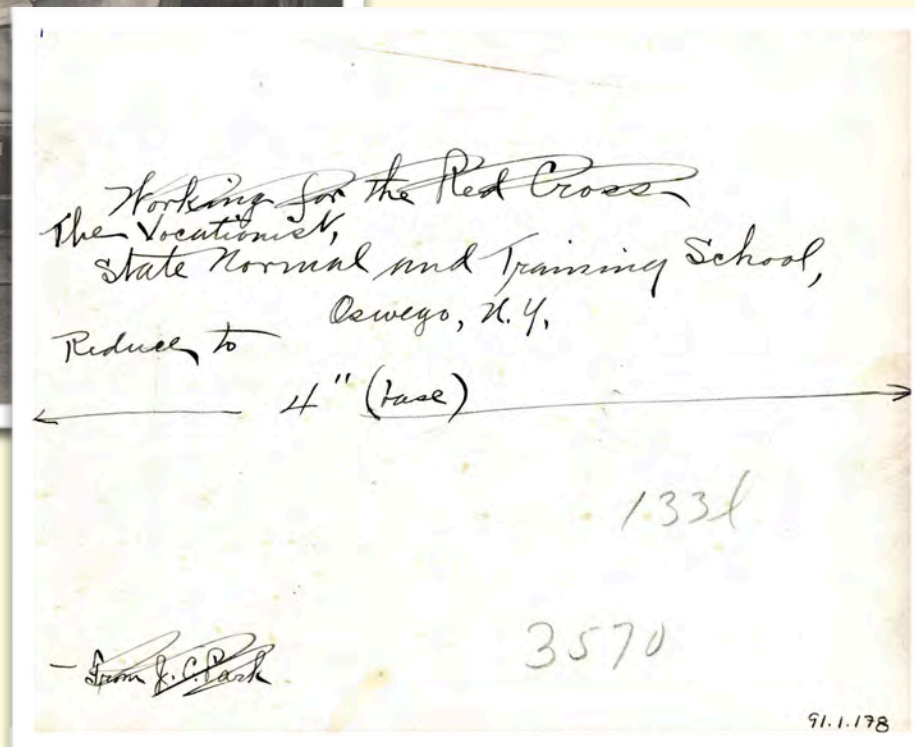 Working for the Red Cross
The Vocationist,
State Normal and Training School,
Oswego, N.Y.
Reduce to
4" (base)
133l
3570
- From J. C. Park
91.1.178